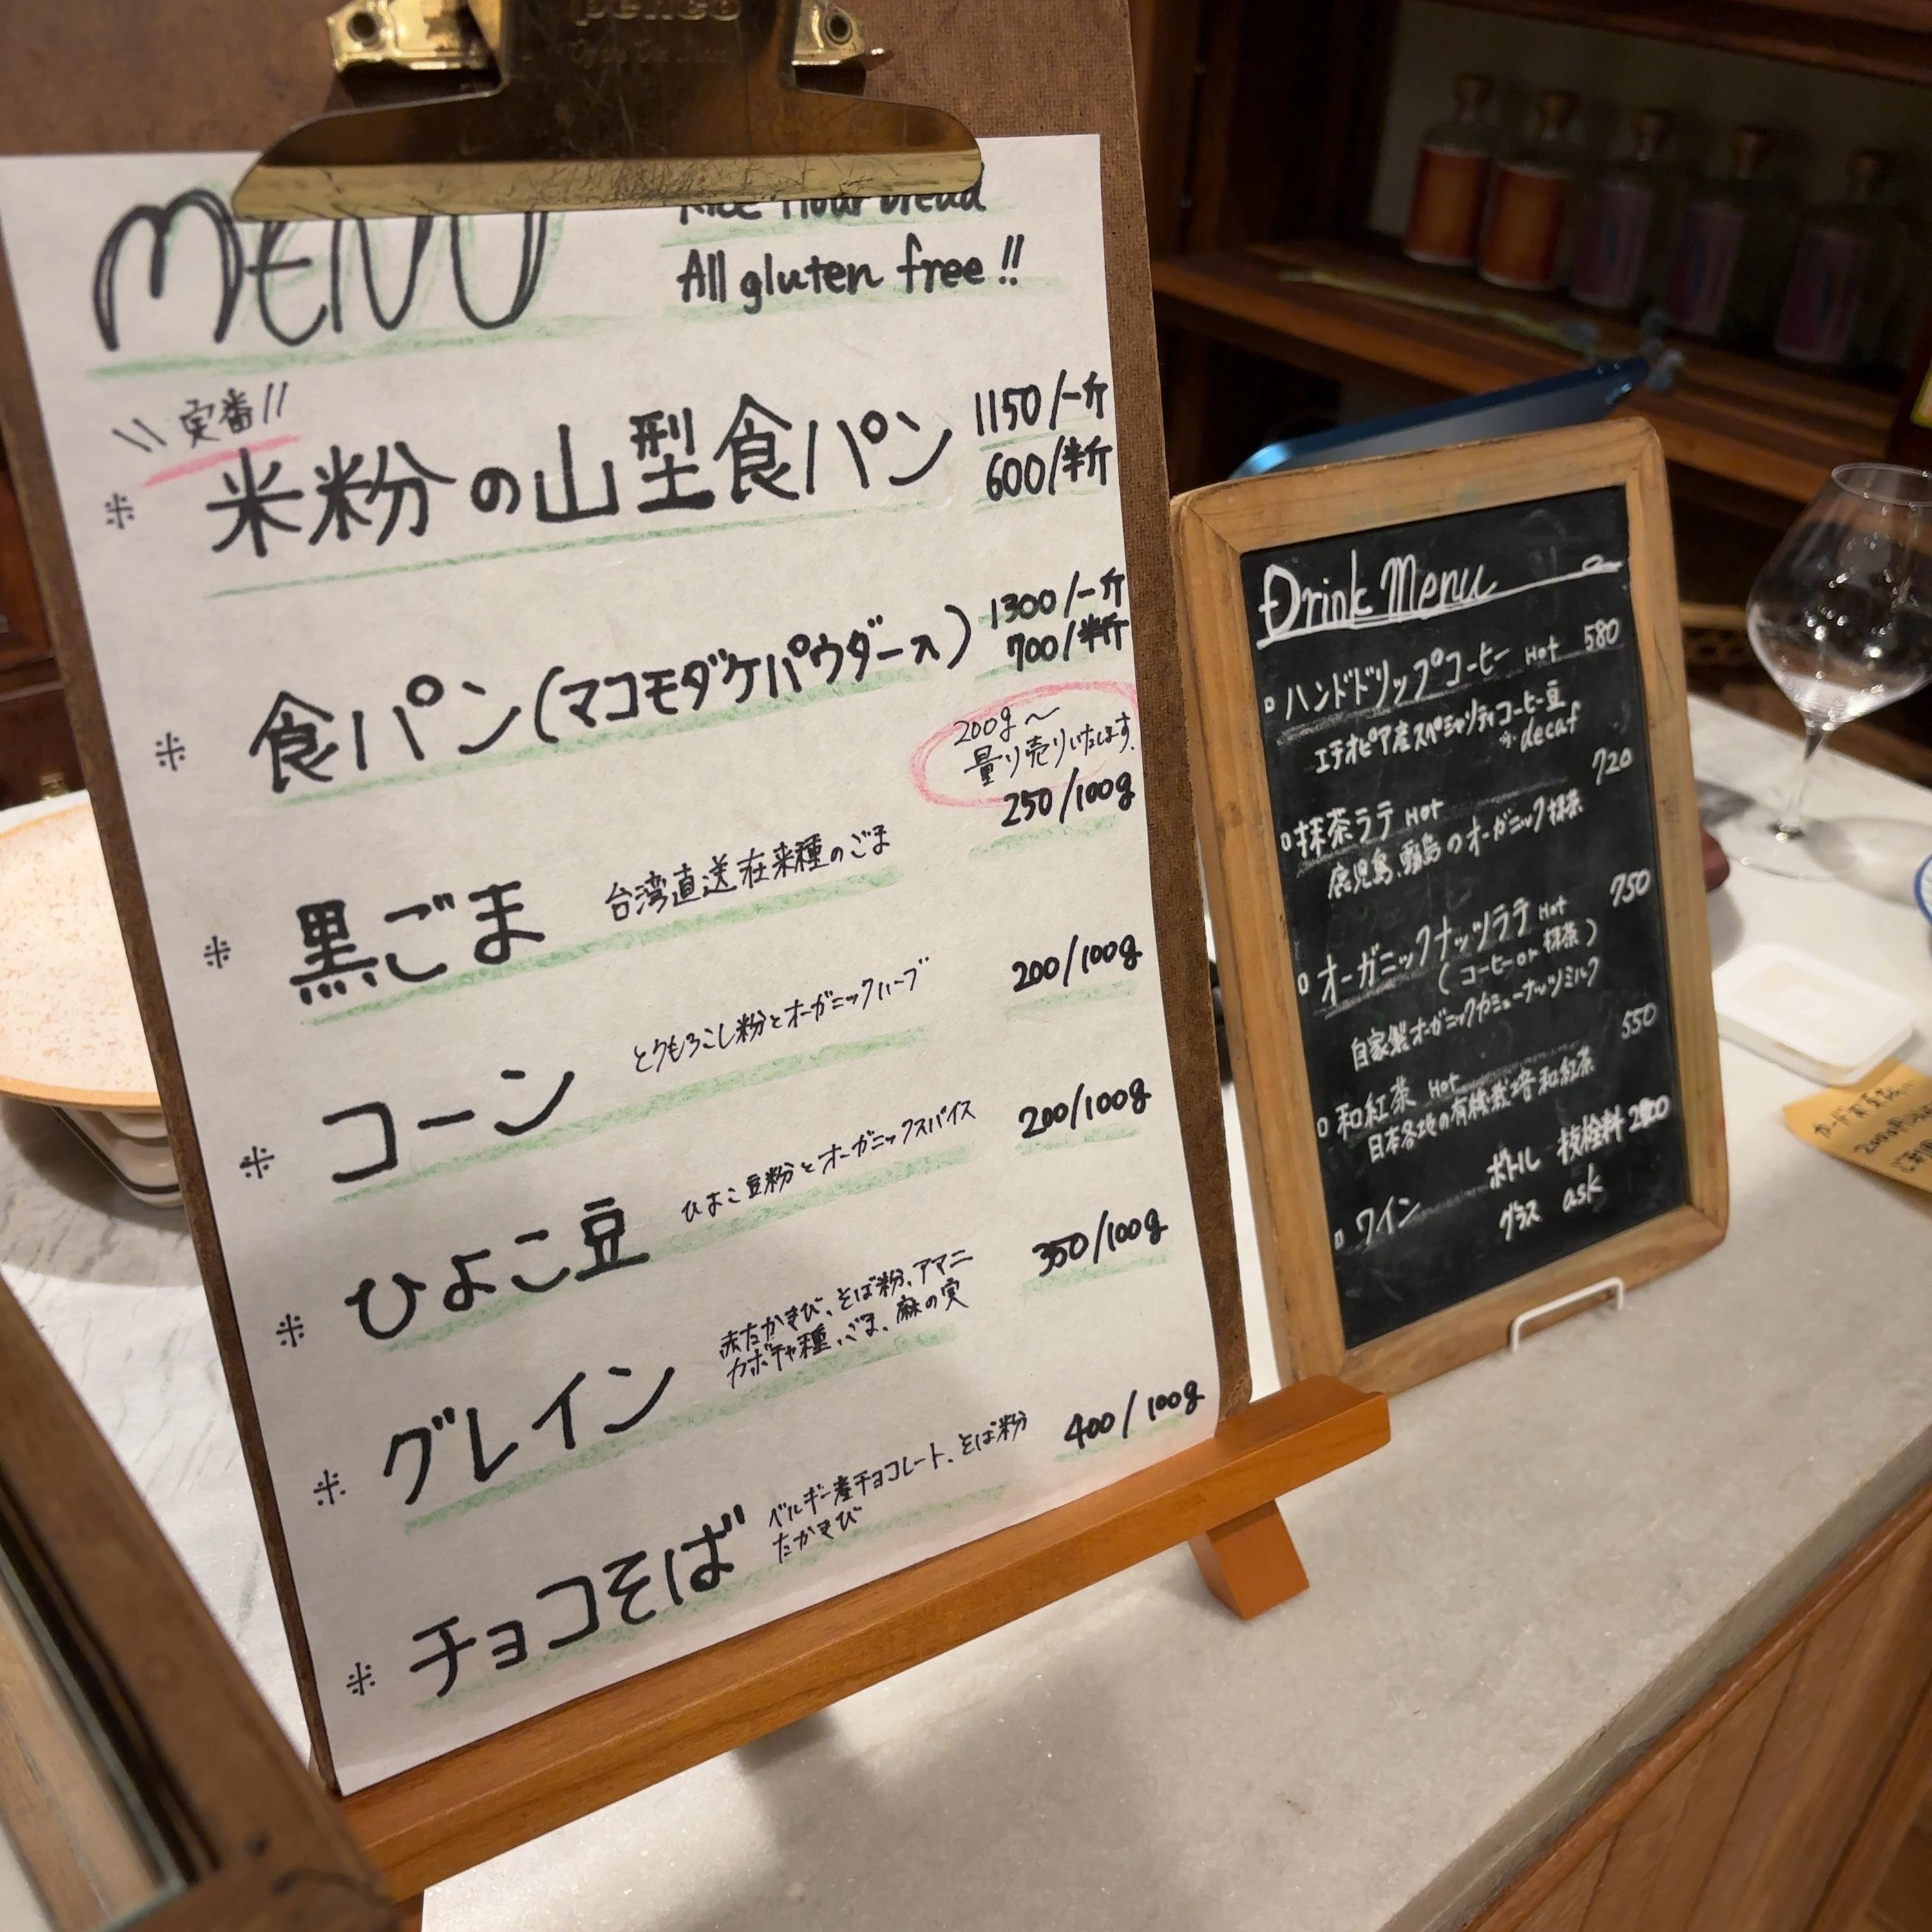 penco
MENU
Rice flour bread
All gluten free!!
\\ 定番 //
※ 米粉の山型食パン
1150/一斤
600/半斤
※ 食パン(マコモダケパウダー入)
1300/一斤
700/半斤
200g〜
量り売りいたします。
※ 黒ごま 台湾直送在来種のごま 250/100g
※ コーン とうもろこし粉とオーガニックハーブ 200/100g
※ ひよこ豆 ひよこ豆粉とオーガニックスパイス 200/100g
※ グレイン 赤たかきび、そば粉、アマニ 350/100g
カボチャ種、ごま、麻の実
※ チョコそば ベルギー産チョコレート、そば粉 400/100g
たかきび
Drink Menu
ハンドドリップコーヒー Hot 580
エチオピア産スペシャリティコーヒー豆
※decaf
抹茶ラテ Hot 720
鹿児島、霧島のオーガニック抹茶
オーガニックナッツラテ Hot 750
(コーヒー or 抹茶)
自家製オーガニックカシューナッツミルク
和紅茶 Hot 550
日本各地の有機栽培和紅茶
ワイン ボトル 抜栓料
グラス ask